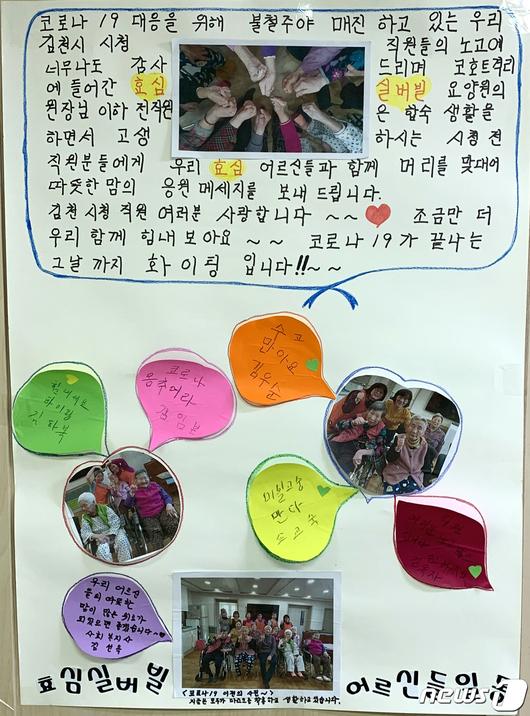 코로나 19 대응을 위해 불철주야 매진 하고 있는 우리
김천시 시청 직원들의 노고에
너무나도 감사 드리며 코호트격리
에 들어간 효심 실버빌 요양원의
원장님 이하 전직원 은 합숙 생활을
하면서 고생 하시는 시청 전
직원분들에게 우리 효심 어르신들과 함께 머리를 맞대어
따뜻한 맘의 응원 메세지를 보내 드립니다.
김천 시청 직원 여러분 사랑합니다 ~~ 조금만 더
우리 함께 힘내 보아요 ~~ 코로나 19가 끝나는
그날 까지 화이팅 입니다!!~~
수고
만아요
김우순
코로나
음추어라
힘내세요
하이팅
미실고송
만다
우리 어르신
들의 따뜻한
맘이 많은 위로가
되었으면 좋겠습니다~
사회 복지사
효심실버빌
<코로나19 이전의 사진~>
지금은 모두가 마스크를 착용하고 생활하고 있습니다.
어르신들의
news1